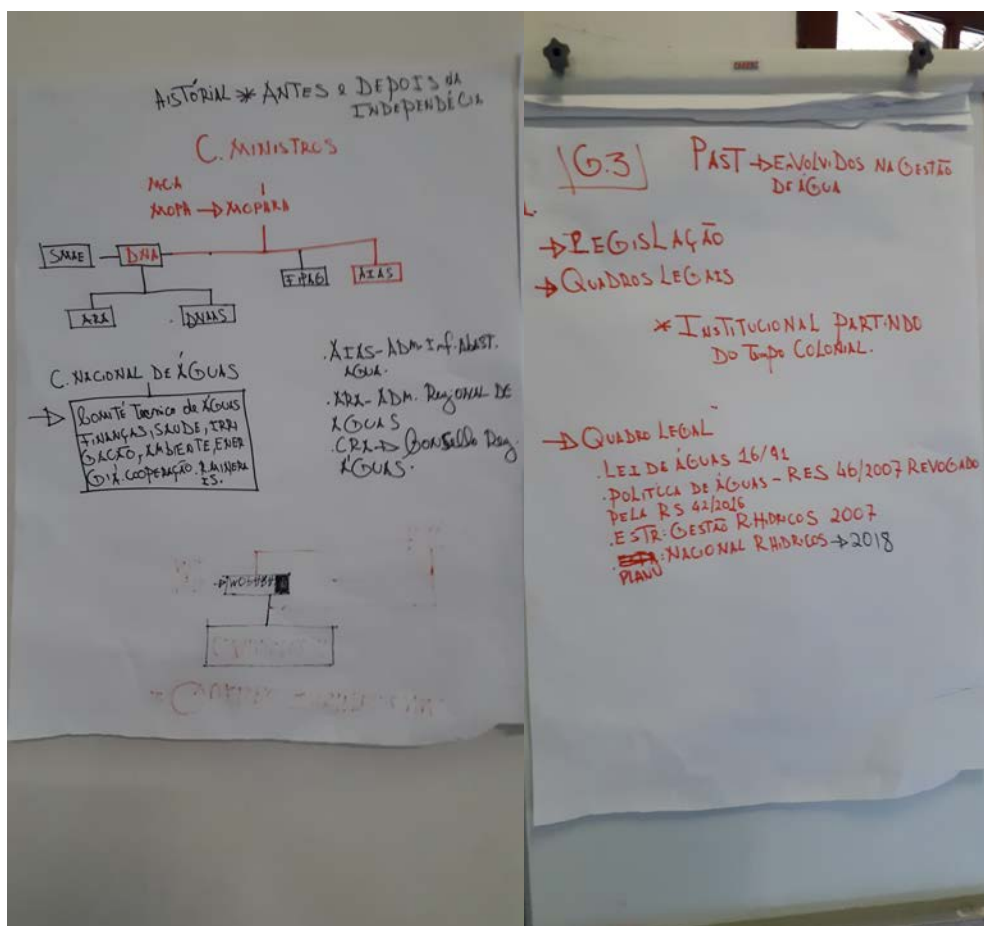 HISTÓRIAL * ANTES e DEPOIS DA
INDEPENDÊCIA
C. MINISTROS
MCA
MOPH → MOPHRH
SMAE
DNA
FIPAG
AIAS
ARA
DNAAS
C. NACIONAL DE ÁGUAS
→ Comité Tecnico de ÁGUAS
FINANÇAS, SAUDE, IRRI
GAÇÃO, AMBIENTE, ENER
GIA. COOPERAÇÃO. R. MINERA
IS.
. AIAS - ADM. Inf. Abast.
ÁGUA.
. ARA - ADM. Regional DE
ÁGUAS
. CRA → Conselho Reg.
ÁGUAS.
G.3
PAST → ENVOLVIDOS NA GESTÃO
DE ÁGUA
→ REGISLAÇÃO
→ QUADROS LEGAIS
* INSTITUCIONAL PARTINDO
DO Tempo COLONIAL.
→ QUADRO LEGAL
. LEI DE ÁGUAS 16/91
. POLITICA DE ÁGUAS - RES 46/2007 REVOGADO
PELA RS 42/2016
. ESTR: GESTÃO R. HIDRICOS 2007
. : NACIONAL R HIDRICOS → 2018
PLANO